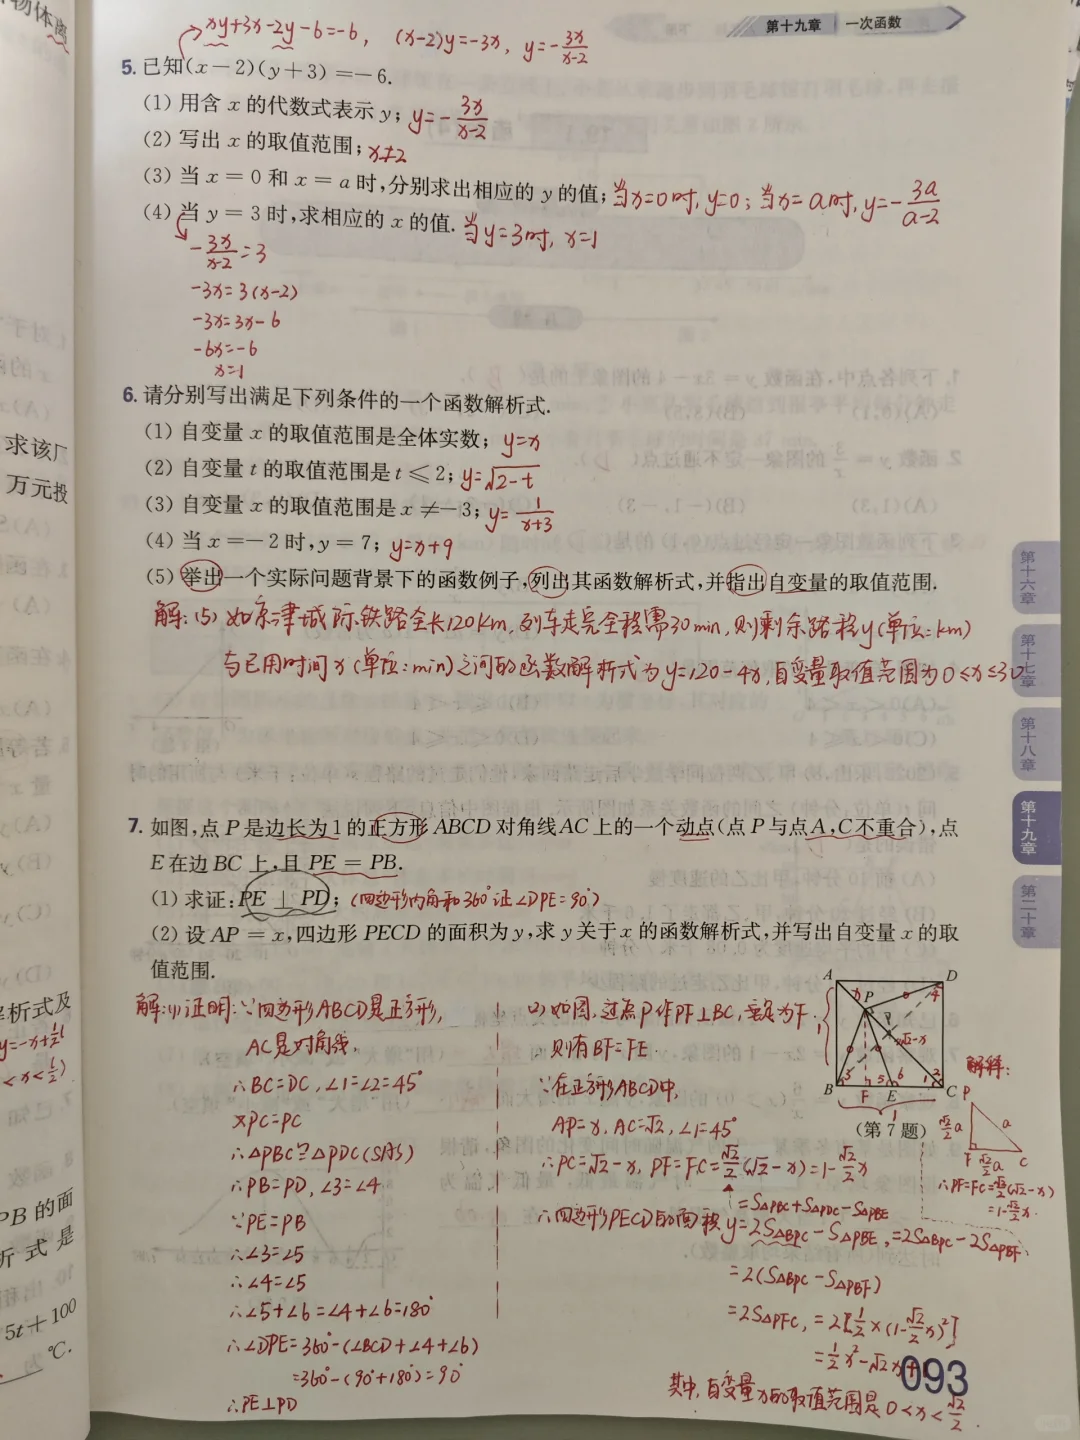 第十九章 一次函数
xy+3x-2y-6=-6, (x-2)y=-3x, y=-3x/(x-2)
5. 已知(x-2)(y+3)=-6.
(1) 用含 x 的代数式表示 y; y=-3x/(x-2)
(2) 写出 x 的取值范围; x≠2
(3) 当 x=0 和 x=a 时,分别求出相应的 y 的值; 当x=0时, y=0; 当x=a时, y=-3a/(a-2)
(4) 当 y=3 时,求相应的 x 的值. 当y=3时, x=1
-3x/(x-2)=3
-3x=3(x-2)
-3x=3x-6
-6x=-6
x=1
6. 请分别写出满足下列条件的一个函数解析式.
(1) 自变量 x 的取值范围是全体实数; y=x
(2) 自变量 t 的取值范围是 t≤2; y=√(2-t)
(3) 自变量 x 的取值范围是 x≠-3; y=1/(x+3)
(4) 当 x=-2 时,y=7; y=x+9
(5) 举出一个实际问题背景下的函数例子,列出其函数解析式,并指出自变量的取值范围.
解:(5) 如京津城际铁路全长120km,列车走完全程需30min,则剩余路程y(单位:km)
与已用时间x(单位:min)之间的函数解析式为y=120-4x,自变量取值范围为0≤x≤30
7. 如图,点 P 是边长为 1 的正方形 ABCD 对角线 AC 上的一个动点(点 P 与点 A,C 不重合),点
E 在边 BC 上,且 PE=PB.
(1) 求证:PE⊥PD; (四边形内角和360°证∠DPE=90°)
(2) 设 AP=x,四边形 PECD 的面积为 y,求 y 关于 x 的函数解析式,并写出自变量 x 的取
值范围.
解:(1)证明:∵四边形ABCD是正方形,
AC是对角线,
∴BC=DC,∠1=∠2=45°
又PC=PC
∴△PBC≌△PDC(SAS)
∴PB=PD,∠3=∠4
∵PE=PB
∴∠3=∠5
∴∠4=∠5
∴∠5+∠6=∠4+∠6=180°
∴∠DPE=360°-(∠BCD+∠4+∠6)
=360°-(90°+180°)=90°
∴PE⊥PD
(2)如图,过点P作PF⊥BC,垂足为F.
则有BF=FE.
∵在正方形ABCD中,
AP=x, AC=√2,∠1=45°
∴PC=√2-x, PF=FC=√2/2(√2-x)=1-√2/2x
=S△PBC+S△PDC-S△PBE
∴四边形PECD的面积y=2S△BPC-S△PBE,=2S△BPC-2S△PBF
=2(S△BPC-S△PBF)
=2S△PFC,=2[1/2×(1-√2/2x)²]
=1/2x²-√2x+1
其中,自变量x的取值范围是0<x<√2/2.
A D
P
x
√2-x
1
B F E C
1
(第 7 题)
解释:
P
√2/2a a
F √2/2a C
∴PF=FC=√2/2(√2-x)
=1-√2/2x.
093
第十六章
第十七章
第十八章
第十九章
第二十章
求该厂
万元投
解析式及
PB 的面
析式是
5t+100
℃.